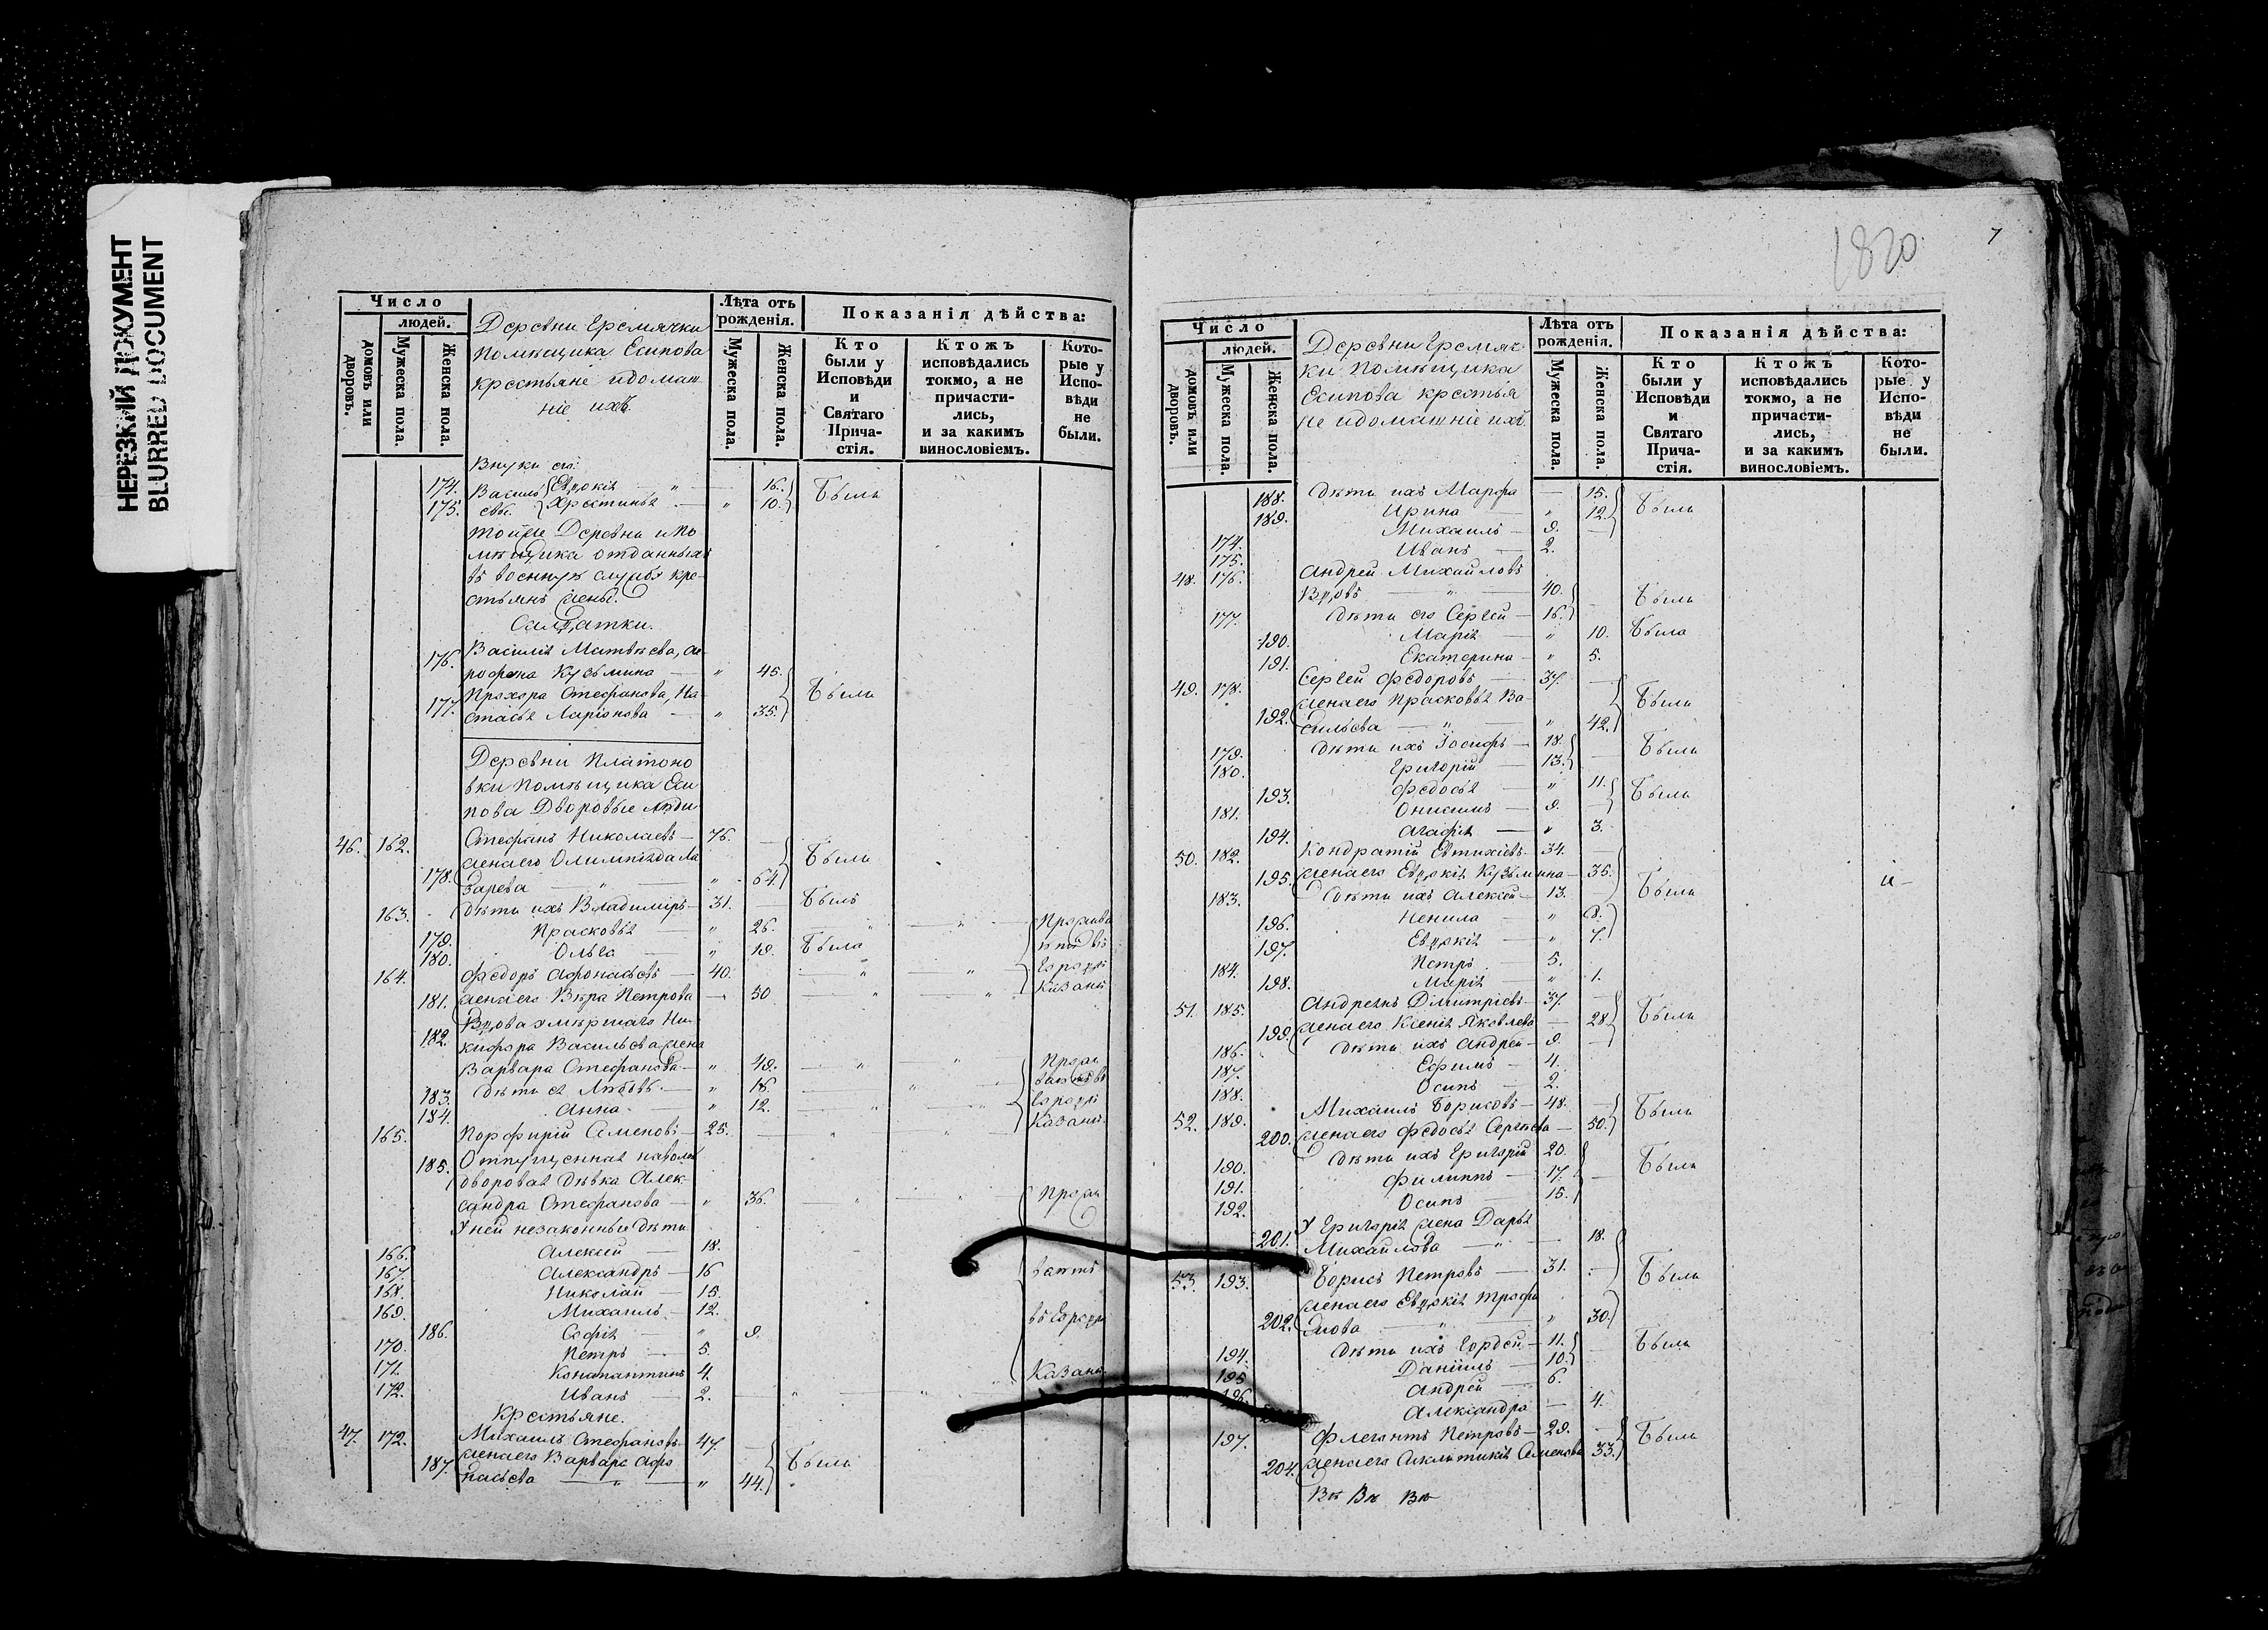 НЕРЕЗКИЙ ДОКУМЕНТ
BLURRED DOCUMENT
Число
людей.
домовъ или дворовъ.
Мужеска пола.
Женска пола.
Деревни Еремячки
Помѣщика Есипова
крестьяне и домаш
ніе ихъ
Лѣта отъ рожденія.
Мужеска пола.
Женска пола.
Показанія дѣйства:
Кто были у Исповѣди и Святаго Прича-стія.
Ктожъ исповѣдались токмо, а не причасти-лись, и за какимъ винословіемъ.
Кото-рые у Испо-вѣди не были.
Внуки его:
174. Василь Евдокія — " — 16. Были
175. евы. Христинья — " 10.
Тойже Деревни и По
мѣщика отданныхъ
въ военную службу кре-
стьянъ жены.
Салдатки.
176. Василія Матвѣева, Аг-
рофена Кузьмина — " 45. Были
177. Прохора Стефанова, На-
стасья Ларіонова — " 35.
Деревни Платоно
вки Помѣщика Еси
пова Дворовые люди
46. 162. Стефанъ Николаевъ — 76. —
178. жена его Олимпіада Ла Были
зарева — " — " 64.
163. дѣти ихъ Владиміръ — 31. — Былъ
179. Прасковья — " 26. " — " — Прожива
180. Ольга — " 19. Была ютъ въ
164. Федоръ Афонасьевъ — 40. — " " городѣ
181. жена его Вѣра Петрова — 50 — " — " Казани
182. Вдова умершаго Ни-
кифора Васильева жена
Варвара Стефанова — " 49. — " — " — Прожи
183. дѣти ея Любовь — " 16. — " — ваютъ въ
184. Анна — " 12. — " — " городѣ
165. Порфирій Семеновъ — 25. — " " Казани.
185. Отпущенная на волю
дворовая дѣвка Алек-
сандра Стефанова — " 36. — " — " — Прожи
У ней незаконные дѣти
166. Алексѣй — 18.
167. Александръ — 16 ваютъ
168. Николай — 15.
169. Михаилъ — 12. въ городѣ
186. Софія — " 9.
170. Петръ — 5.
171. Константинъ 4. Казани
172. Иванъ — 2. — " — "
Крестьяне.
47. 172. Михаилъ Стефановъ — 47. —
187. жена его Варвара Афо Были
насьева — " — " 44.
1820
7
Число
людей.
домовъ или дворовъ.
Мужеска пола.
Женска пола.
Деревни Еремяч
ки Помѣщика
Есипова крестья
не и домашніе ихъ
Лѣта отъ рожденія.
Мужеска пола.
Женска пола.
Показанія дѣйства:
Кто были у Исповѣди и Святаго Прича-стія.
Ктожъ исповѣдались токмо, а не причасти-лись, и за какимъ винословіемъ.
Кото-рые у Испо-вѣди не были.
188. Дѣти ихъ Марфа — 15. Были
189. Ирина — " 12.
174. Михаилъ — 9. —
175. Иванъ — 2.
48. 176. Андрей Михайловъ
Вдовъ — " — 40. Были
177. дѣти его Сергей — 16.
190. Марія — " 10. Была
191. Екатерина — " 5.
49. 178. Сергей Федоровъ — 37. —
192. жена его Прасковья Ва- Были
сильева — " — " 42.
179. дѣти ихъ Іосифъ — 18. Были
180. Григорій — 13. —
193. Федосья — " 11. Были
181. Онисимъ — 9. —
194. Агафія — " 3.
50. 182. Кондратій Евтихіевъ — 34. —
195. жена его Евдокія Кузьмина — 35.
183. Дѣти ихъ Алексѣй — 13. — Были
196. Ненила — " 8.
197. Евдокія — " 7.
184. Петръ — 5.
198. Марія " 1.
51. 185. Андреянъ Димитріевъ — 37 —
199. жена его Ксенія Яковлева — 28 Были
186. Дѣти ихъ Андрей — 9. —
187. Ефимъ — 4.
188. Осипъ — 2.
52. 189. Михаилъ Борисовъ — 48. — Были
200. жена его Федосья Сергѣева — 50.
190. Дѣти ихъ Григорій 20.
191. Филиппъ — 17. — Были
192. Осипъ — 15.
201. У Григорія жена Дарья
Михайлова — " — 18.
53. 193. Борисъ Петровъ — 31. — Были
202. жена его Евдокія Трофи
мова — " — " 30.
194. Дѣти ихъ Гордей — 11. — Были
195 Даніилъ — 10.
196. Андрей — 6.
Александра — 4.
197. Флегонтъ Петровъ — 29. — Были
204. жена его Секлитикія Семенова 33.
Вѣ Вѣ Вѣ